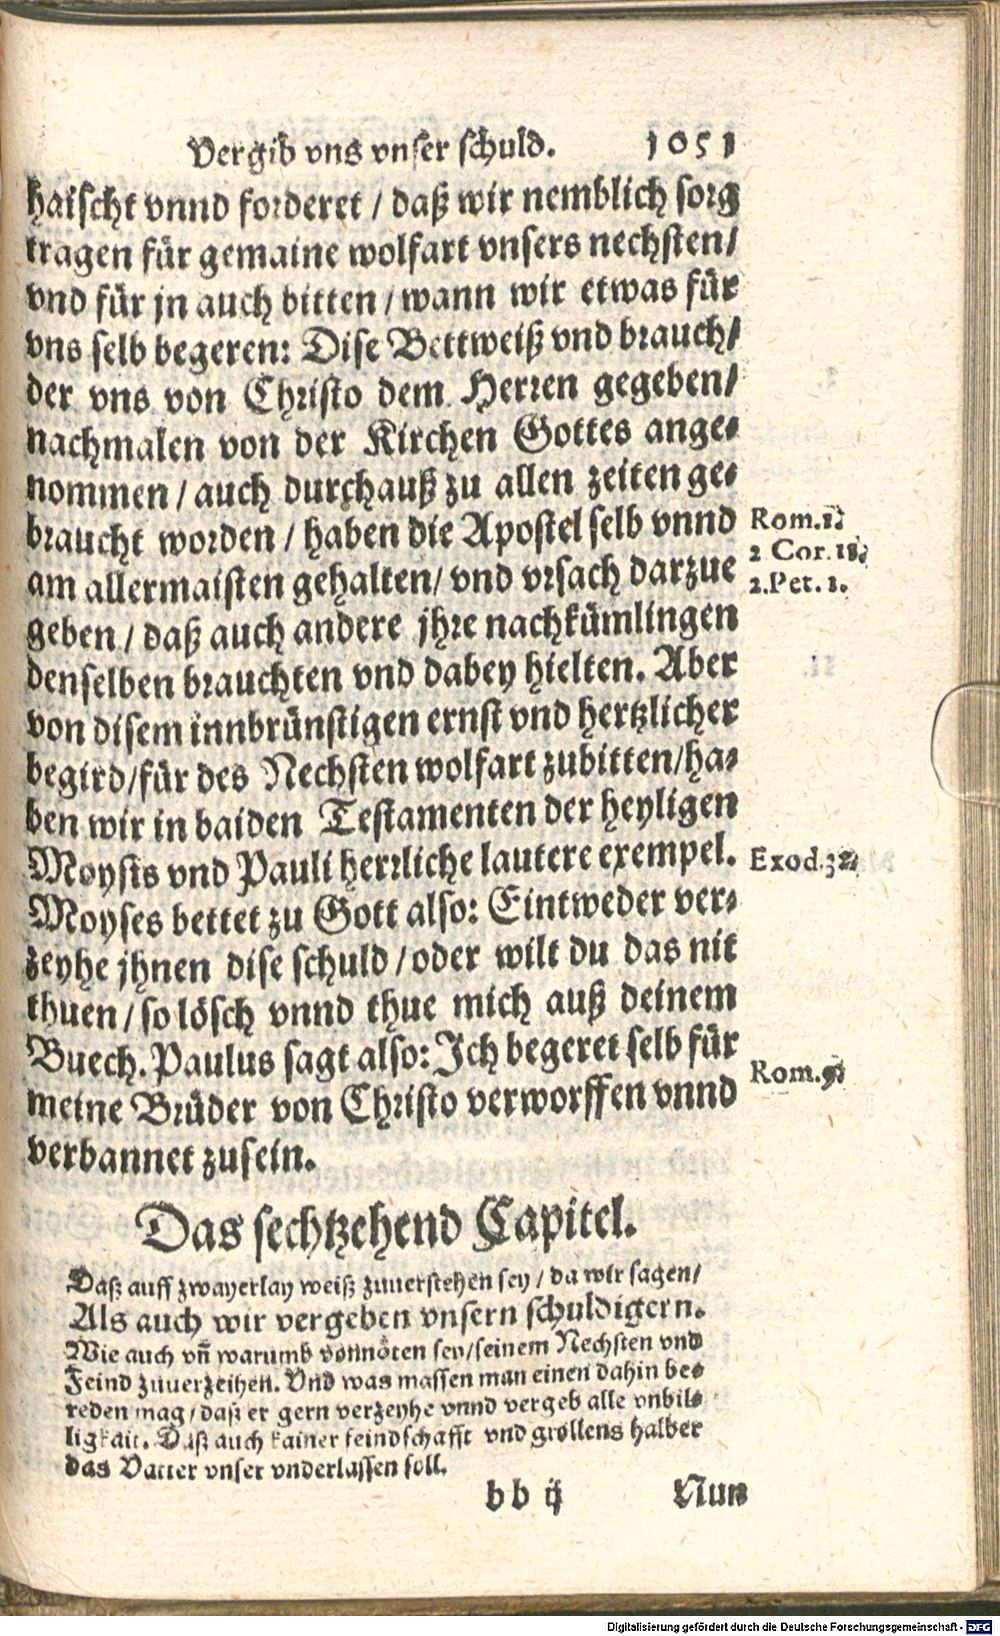 Vergib vns vnser schuld. 1051
haischt vnnd forderet / daß wir nemblich sorg
tragen für gemaine wolfart vnsers nechsten /
vnd für jn auch bitten / wann wir etwas für
vns selb begeren: Dise Bettweiß vnd brauch /
der vns von Christo dem Herren gegeben /
nachmalen von der Kirchen Gottes ange-
nommen / auch durchauß zu allen zeiten ge-
braucht worden / haben die Apostel selb vnnd
Rom.1.
2 Cor. 18.
am allermaisten gehalten / vnd vrsach darzue
2.Pet. 1.
geben / daß auch andere jhre nachkümlingen
denselben brauchten vnd dabey hielten. Aber
von disem innbrünstigen ernst vnd hertzlicher
begird / für des Nechsten wolfart zubitten / ha-
ben wir in baiden Testamenten der heyligen
Moysis vnd Pauli herrliche lautere exempel.
Exod.32.
Moyses bettet zu Gott also: Eintweder ver-
zeyhe jhnen dise schuld / oder wilt du das nit
thuen / so lösch vnnd thue mich auß deinem
Buech. Paulus sagt also: Ich begeret selb für
Rom.9.
meine Brüder von Christo verworffen vnnd
verbannet zusein.
Das sechtzehend Capitel.
Daß auff zwayerlay weiß zuuerstehen sey / da wir sagen /
Als auch wir vergeben vnsern schuldigern.
Wie auch vn̄ warumb vonnöten sey / seinem Nechsten vnd
Feind zuuerzeihen. Vnd was massen man einen dahin be-
reden mag / daß er gern verzeyhe vnnd vergeb alle vnbil-
ligkait. Daß auch kainer feindschafft vnd grollens halber
das Vatter vnser vnderlassen soll.
b b ij Nun
Digitalisierung gefördert durch die Deutsche Forschungsgemeinschaft - DFG